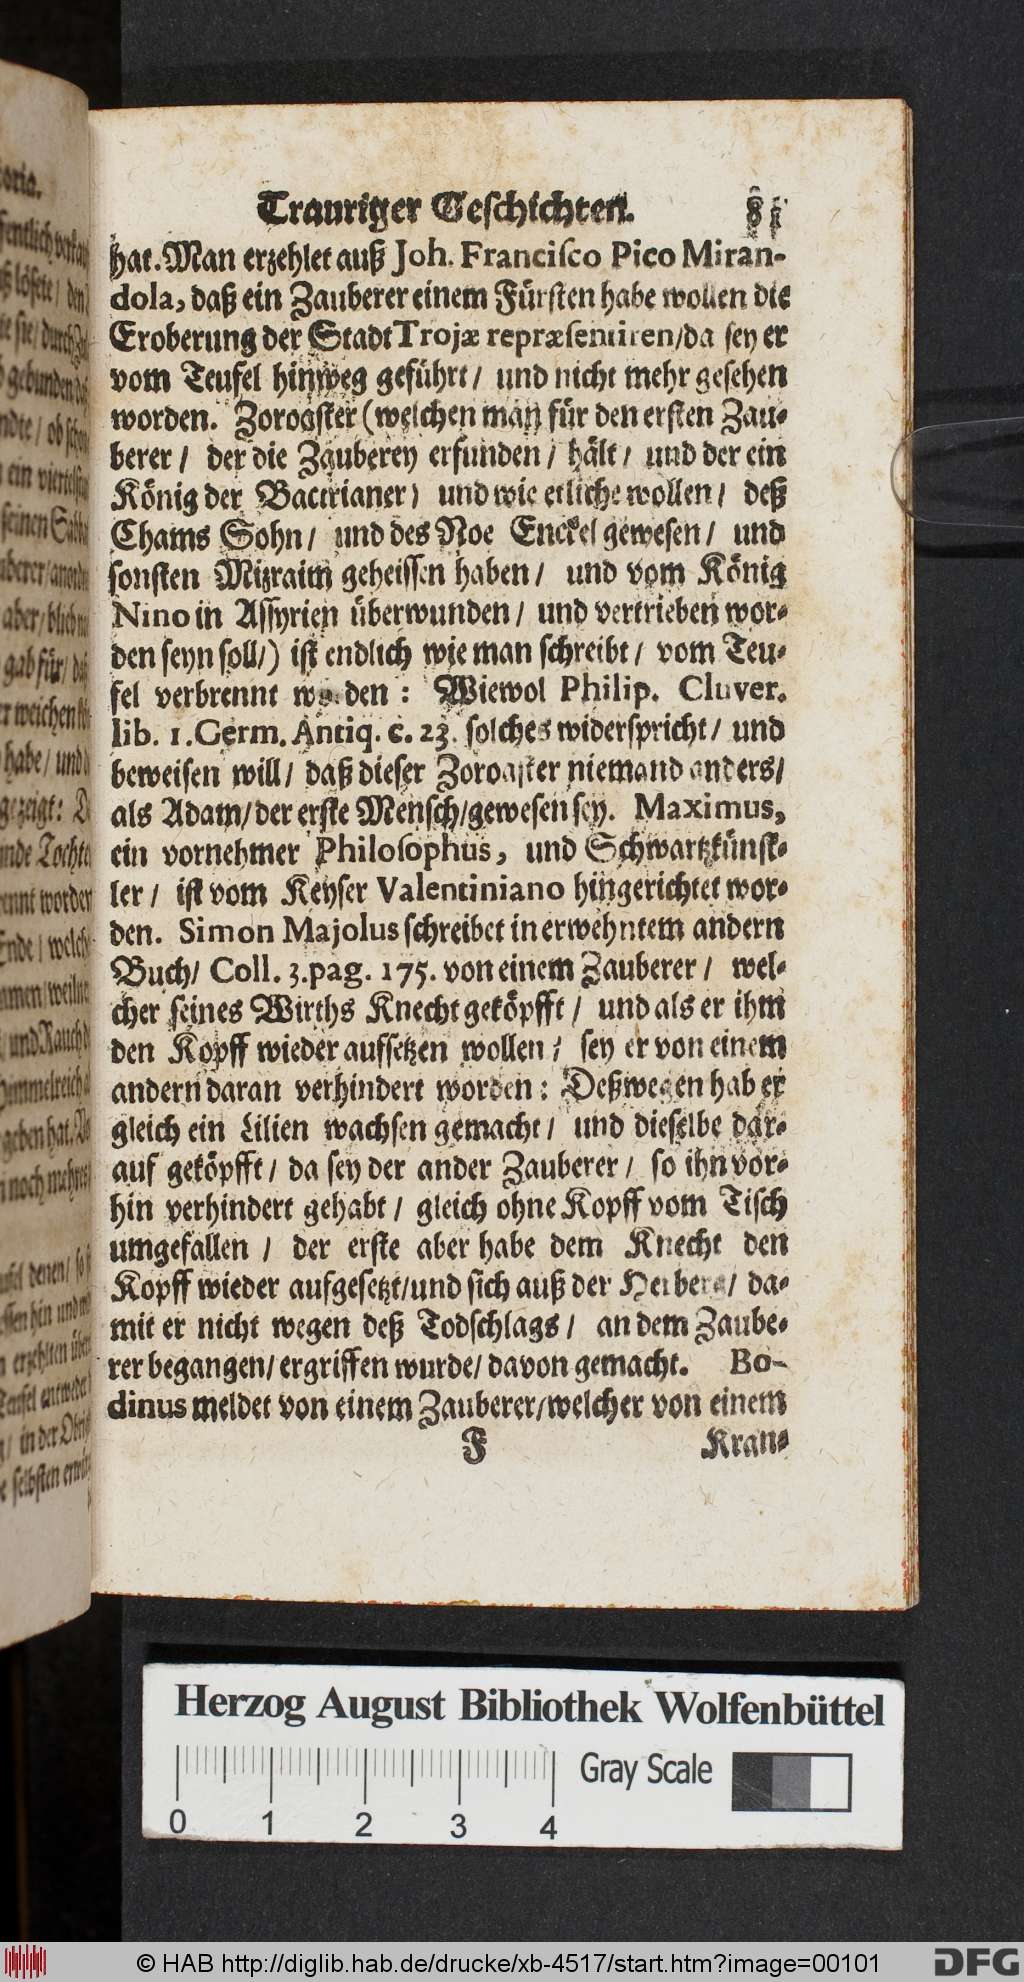 Trauriger Geſchichten. 81
hat. Man erzehlet auß Joh. Franciſco Pico Miran-
dola, daß ein Zauberer einem Fürſten habe wollen die
Eroberung der Stadt Trojæ repræſentiren/da ſey er
vom Teufel hinweg geführt/ und nicht mehr geſehen
worden. Zoroaſter (welchen man für den erſten Zau-
berer/ der die Zauberey erfunden/ hält/ und der ein
König der Bactrianer) und wie etliche wollen/ deß
Chams Sohn/ und des Noe Enckel geweſen/ und
ſonſten Mizraim geheiſſen haben/ und vom König
Nino in Aſſyrien überwunden/ und vertrieben wor-
den ſeyn ſoll/) iſt endlich wie man ſchreibt/ vom Teu-
fel verbrennt worden: Wiewol Philip. Cluver.
lib. 1. Germ. Antiq. c. 23. ſolches widerſpricht/ und
beweiſen will/ daß dieſer Zoroaſter niemand anders/
als Adam/der erſte Menſch/geweſen ſey. Maximus,
ein vornehmer Philoſophus, und Schwartzkünſt-
ler/ iſt vom Keyſer Valentiniano hingerichtet wor-
den. Simon Majolus ſchreibet in erwehntem andern
Buch/ Coll. 3. pag. 175. von einem Zauberer/ wel-
cher ſeines Wirths Knecht geköpfft/ und als er ihm
den Kopff wieder aufſetzen wollen/ ſey er von einem
andern daran verhindert worden: Deßwegen hab er
gleich ein Lilien wachſen gemacht/ und dieſelbe dar-
auf geköpfft/ da ſey der ander Zauberer/ ſo ihn vor-
hin verhindert gehabt/ gleich ohne Kopff vom Tiſch
umgefallen/ der erſte aber habe dem Knecht den
Kopff wieder aufgeſetzt/und ſich auß der Herberg/ da-
mit er nicht wegen deß Todſchlags/ an dem Zaube-
rer begangen/ergriffen wurde/davon gemacht. Bo-
dinus meldet von einem Zauberer/welcher von einem
F Kran-
Herzog August Bibliothek Wolfenbüttel
Gray Scale
0 1 2 3 4
© HAB http://diglib.hab.de/drucke/xb-4517/start.htm?image=00101
DFG